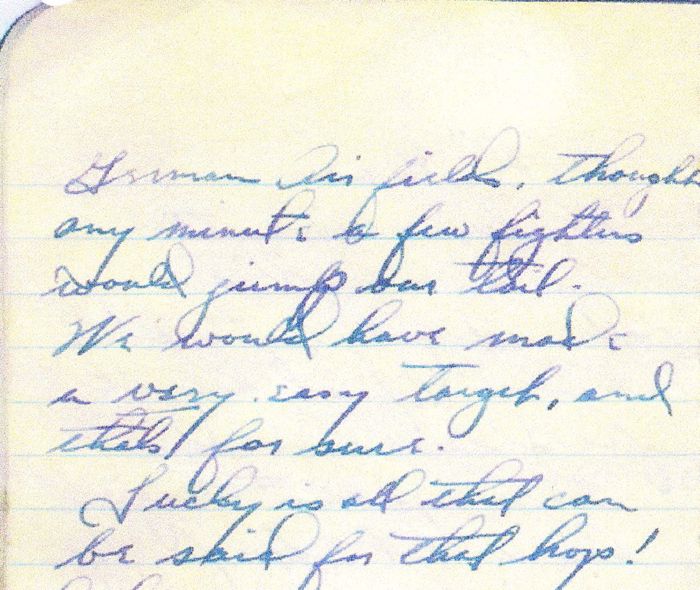 German Air fields, thought
any minute a few fighters
would jump our tail.
We would have made
a very easy target, and
thats for sure.
Lucky is all that can
be said for that hop!